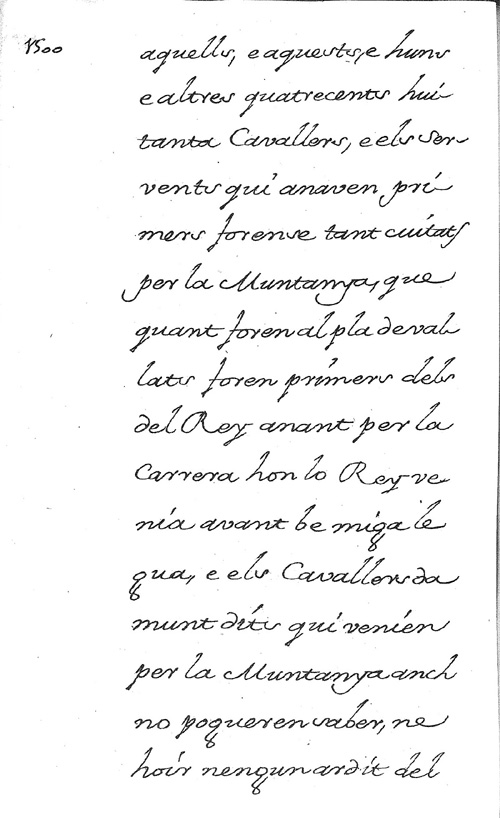 1500
aquells, e aquests, e huns
e altres quatrecents hui-
tanta Cavallers, e els Ser-
vents qui anaven pri-
mers forense tant cuitats
per la Muntanya, que
quant foren al pla deval-
lats foren primers dels
del Rey anant per la
Carrera hon lo Rey ve-
nia avant be miga le
gua, e els Cavallers da
munt dits qui venien
per la Muntanya anch
no pogueren saber, ne
hoir nengun ardit del